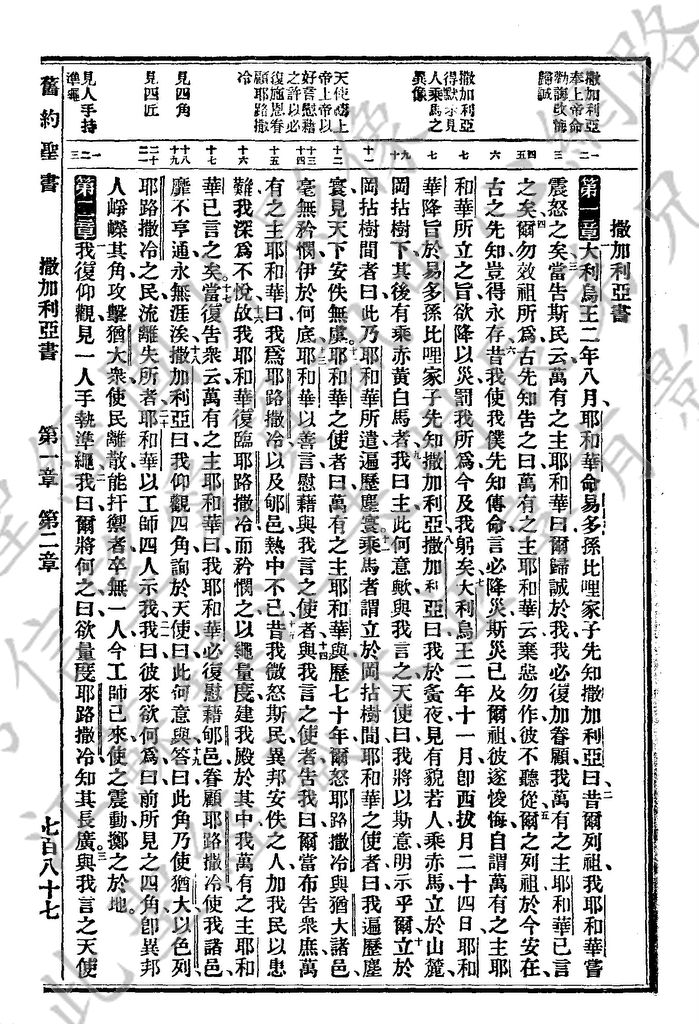 撒加利亞書
撒加利亞
奉上帝命
勸誨改悔
歸誠
撒加利亞
得默示見
人乘馬之
異像
天使禱上
帝上帝以
好言慰藉
之許以必
復施恩眷
顧耶路撒
冷
見四角
見四匠
見人手持
準繩
第一章大利烏王二年八月耶和華命易多孫比哩家子先知撒加利亞曰昔爾列祖我耶和華嘗
震怒之矣當告斯民云萬有之主耶和華曰爾歸誠於我我必復加眷顧我萬有之主耶和華已言
之矣爾勿效祖所爲古先知告之曰萬有之主耶和華云棄惡勿作彼不聽從爾之列祖於今安在
古之先知豈得永存昔我使我僕先知傳命言必降災斯災已及爾祖彼遂悛悔自謂萬有之主耶
和華所立之旨欲降以災罰我所爲今及我躬矣大利烏王二年十一月卽西拔月二十四日耶和
華降旨於易多孫比哩家子先知撒加利亞撒加利亞曰我於夤夜見有貌若人乘赤馬立於山麓
岡拈樹下其後有乘赤黃白馬者我曰主此何意歟與我言之天使曰我將以斯意明示乎爾立於
岡拈樹間者曰此乃耶和華所遣遍歷塵寰乘馬者謂立於岡拈樹間耶和華之使者曰我遍歷塵
寰見天下安佚無虞耶和華之使者曰萬有之主耶和華與歷七十年爾怒耶路撒冷與猶大諸邑
毫無矜憫伊於何底耶和華以善言慰藉與我言之使者與我言之使者告我曰爾當布告衆庶萬
有之主耶和華曰我爲耶路撒冷以及郇邑熱中不已昔我微怒斯民異邦安佚之人加我民以患
難我深爲不悅故我耶和華復臨耶路撒冷而矜憫之以繩量度建我殿於其中我萬有之主耶和
華已言之矣當復告衆云萬有之主耶和華曰我耶和華必復慰藉郇邑眷顧耶路撒冷使我諸邑
靡不亨通永無涯涘撒加利亞曰我仰觀四角詢於天使曰此何意與答曰此角乃使猶大以色列
耶路撒冷之民流離失所者耶和華以工師四人示我我曰彼來欲何爲曰前所見之四角卽異邦
人嶄嶸其角攻擊猶大衆使民離散能扞禦者卒無一人今工師已來使之震動擲之於地
第二章我復仰觀見一人手執準繩我曰爾將何之曰欲量度耶路撒冷知其長廣與我言之天使
舊約聖書 撒加利亞書 第一章 第二章 七百八十七